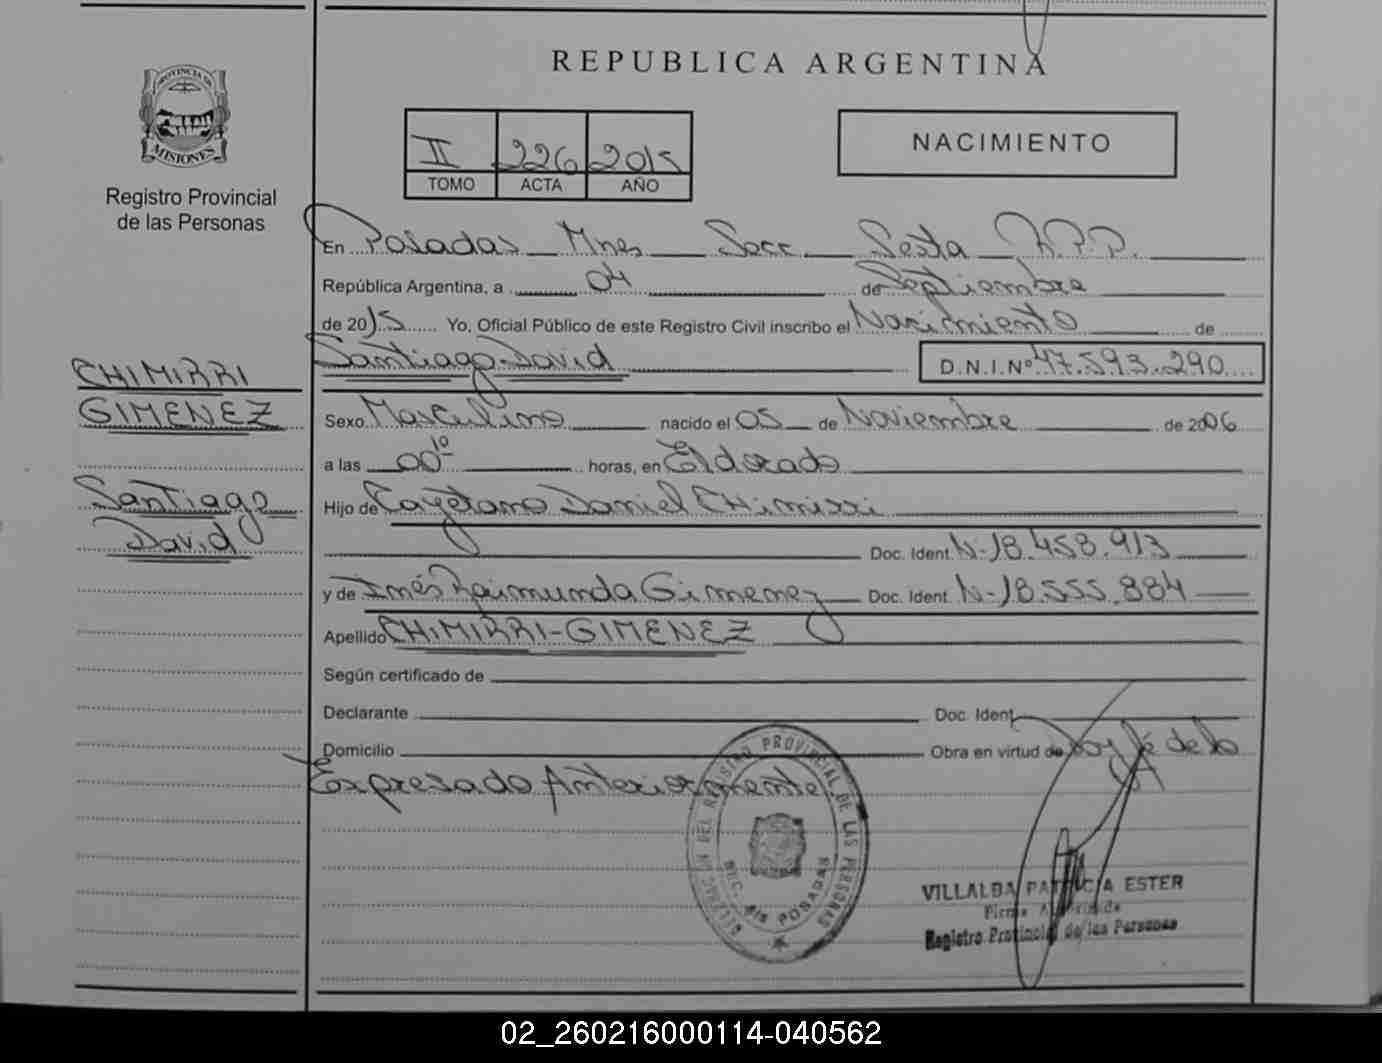 REPUBLICA ARGENTINA
PROVINCIA DE
MISIONES
Registro Provincial
de las Personas
II 226 2015
TOMO ACTA AÑO
NACIMIENTO
En Posadas Mnes Secc Sexta R.P.P.
República Argentina, a 04 de Septiembre
de 2015 Yo, Oficial Público de este Registro Civil inscribo el Nacimiento de
Santiago David D.N.I.Nº 47.593.290
CHIMIRRI
GIMENEZ
Santiago
David
Sexo Masculino nacido el 05 de Noviembre de 2006
a las 00 10 horas, en Eldorado
Hijo de Cayetano Daniel CHimirri
Doc. Ident. N-18.458.913
y de Inés Raimunda Gimenez Doc. Ident. N-18.555.884
Apellido CHIMIRRI-GIMENEZ
Según certificado de
Declarante Doc. Ident.
Domicilio Obra en virtud de Doy fé de lo
Expresado Anteriormente
DEL REGISTRO PROVINCIAL DE LAS PERSONAS
SEC. 6ta POSADAS
VILLALBA PATRICIA ESTER
Firma Autorizada
Registro Provincial de las Personas
02_260216000114-040562